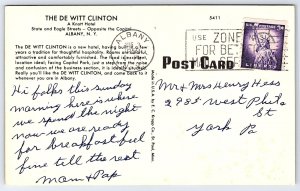 THE DE WITT CLINTON
A Knott Hotel
State and Eagle Streets - Opposite the Capitol
ALBANY, N. Y.
The DE WITT CLINTON is a new hotel, having built in a few
years a tradition for thoughtful hospitality. Rooms are large,
attractive and comfortably furnished. The food is excellent.
Ideally located, facing Capitol Park, just a step from the noise
and confusion of the business section, it is ideally situated.
Really you'll like the DE WITT CLINTON, and come back to it
whenever you are in Albany.
5411
ALBANY
USE ZONE
FOR BET
Post Card
Hi folks this sunday
morning here is where
we spend the nite
now we are ready
for breakfast but
fine till the rest
Mom & Pap
Mr + Mrs Henry Hess
2985 West Phila
St
York Pa